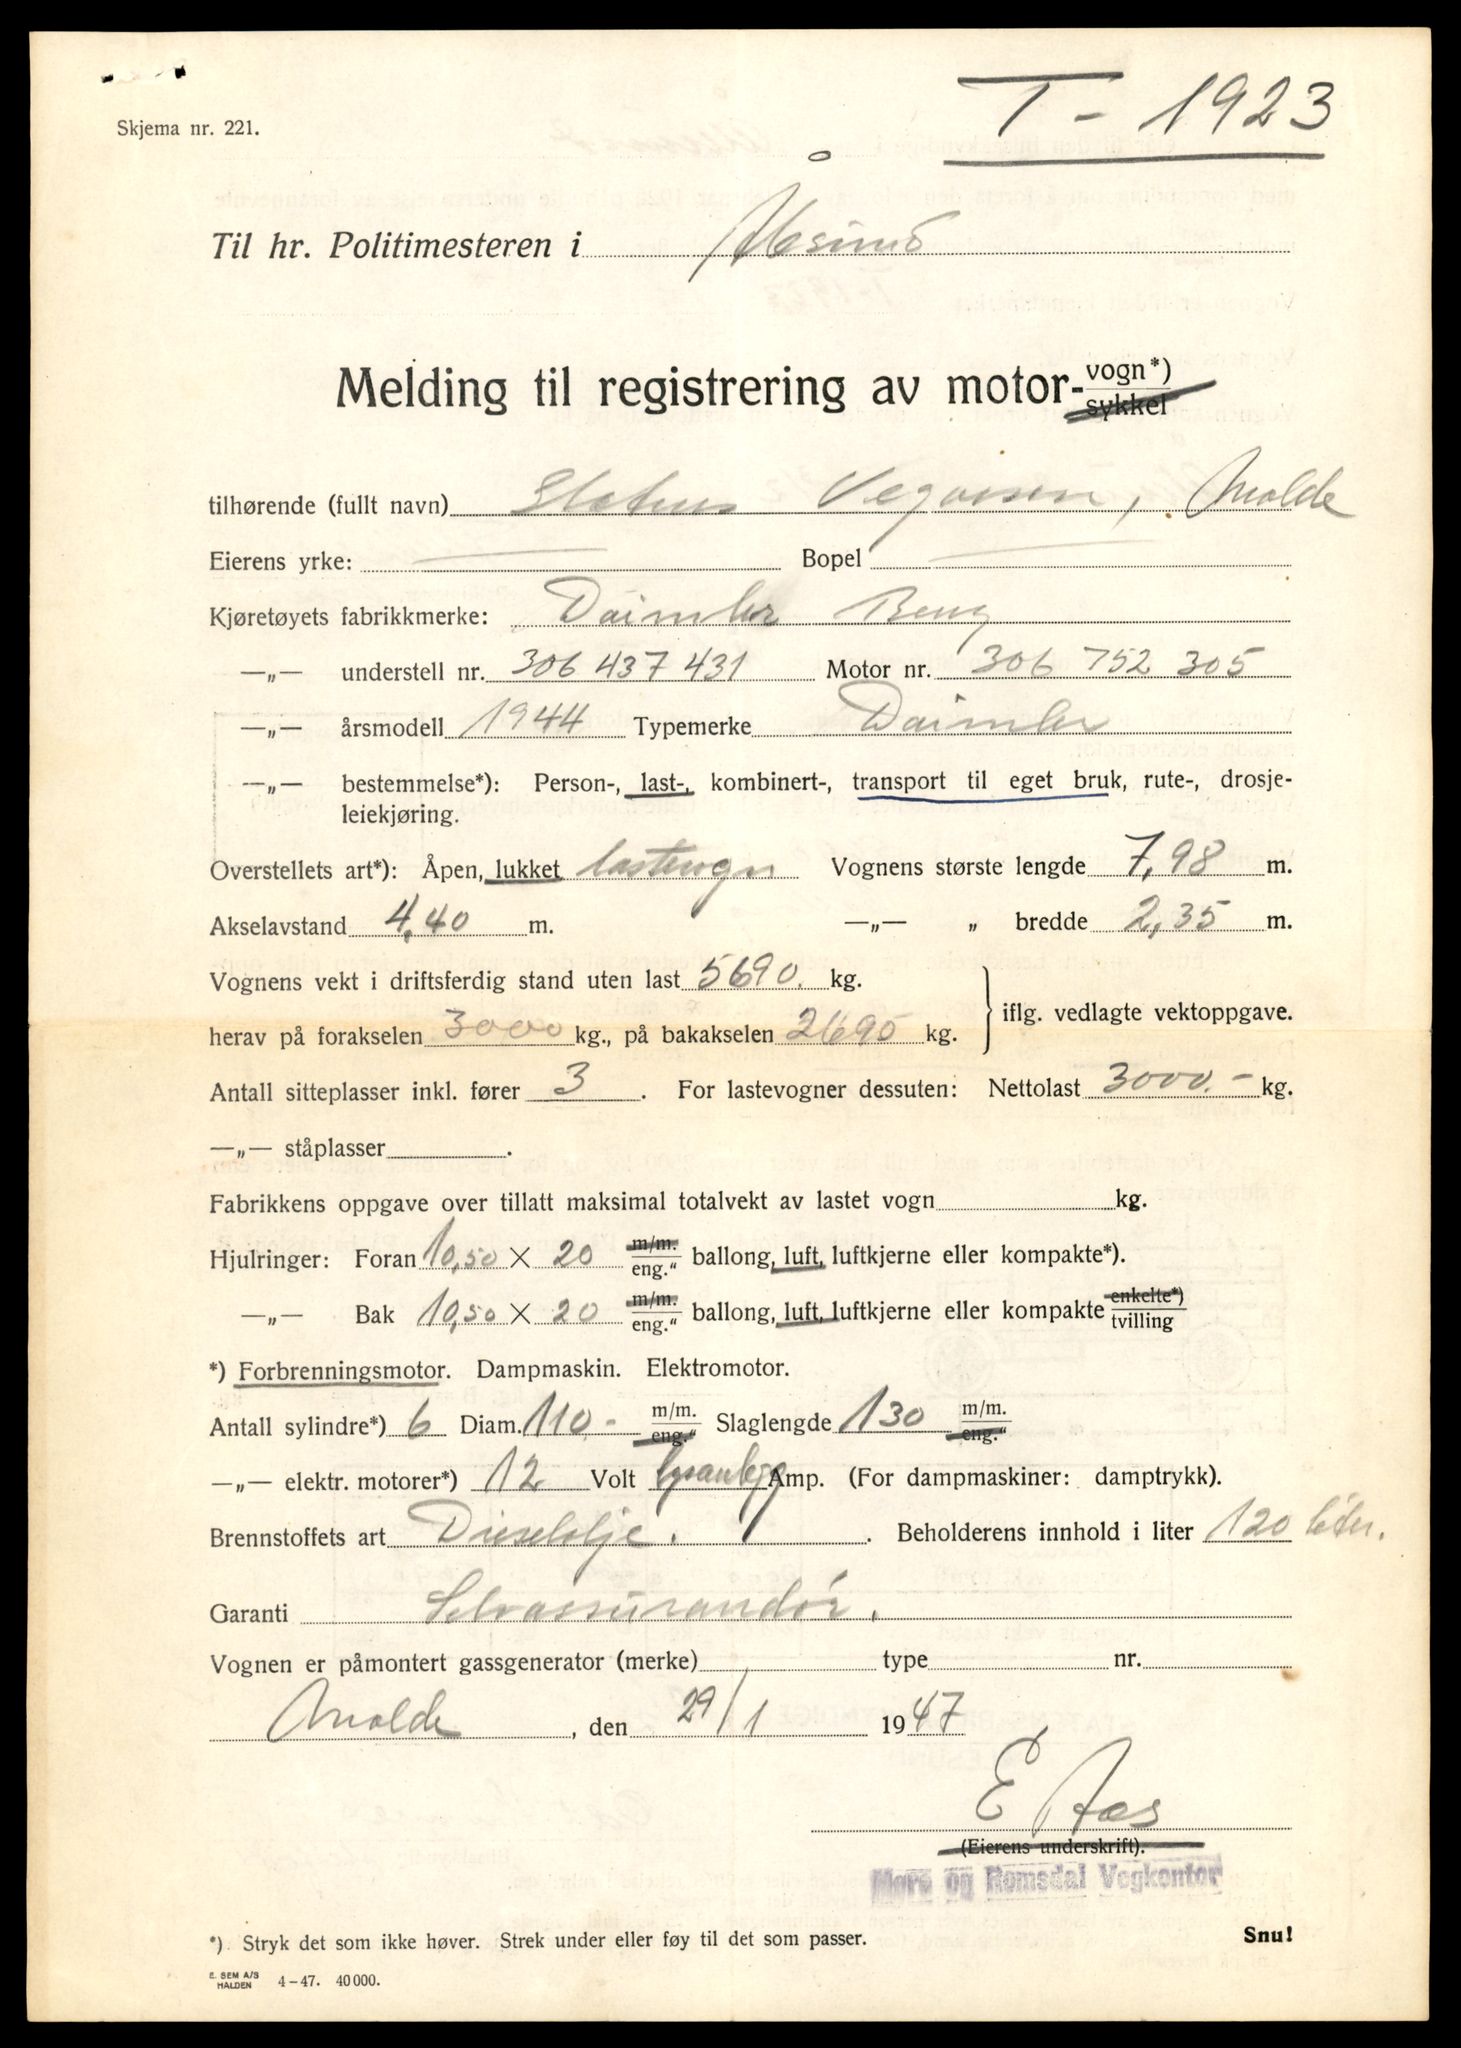 T - 1923
Skjema nr. 221.
Til hr. Politimesteren i Ålesund
Melding til registrering av motor- vogn*) sykkel
tilhørende (fullt navn) Statens Vegvesen, Molde
Eierens yrke: Bopel
Kjøretøyets fabrikkmerke: Daimler Benz
—„— understell nr. 306 437 431 Motor nr. 306 752 305
—„— årsmodell 1944 Typemerke Daimler
—„— bestemmelse*): Person-, last-, kombinert-, transport til eget bruk, rute-, drosje-
leiekjøring.
Overstellets art*): Åpen, lukket lastevogn Vognens største lengde 7,98 m.
Akselavstand 4,40 m. —„— „ bredde 2,35 m.
Vognens vekt i driftsferdig stand uten last 5690. kg.
iflg. vedlagte vektoppgave.
herav på forakselen 3000 kg., på bakakselen 2695 kg.
Antall sitteplasser inkl. fører 3. For lastevogner dessuten: Nettolast 3000.- kg.
—„— ståplasser .
Fabrikkens oppgave over tillatt maksimal totalvekt av lastet vogn kg.
Hjulringer: Foran 10,50 × 20 m/m. eng.“ ballong, luft, luftkjerne eller kompakte*).
—„— Bak 10,50 × 20 m/m. eng.“ ballong, luft, luftkjerne eller kompakte enkelte*) tvilling
*) Forbrenningsmotor. Dampmaskin. Elektromotor.
Antall sylindre*) 6 Diam. 110- m/m. eng.“ Slaglengde 130 m/m. eng.“
—„— elektr. motorer*) 12 Volt lysanlegg Amp. (For dampmaskiner: damptrykk).
Brennstoffets art Dieselolje. Beholderens innhold i liter 120 liter.
Garanti Selvassurandør.
Vognen er påmontert gassgenerator (merke) type nr.
Molde, den 29/1 1947
E Aas
(Eierens underskrift).
Møre og Romsdal Vegkontor
*) Stryk det som ikke høver. Strek under eller føy til det som passer. Snu!
E. SEM A/S
HALDEN 4-47. 40 000.